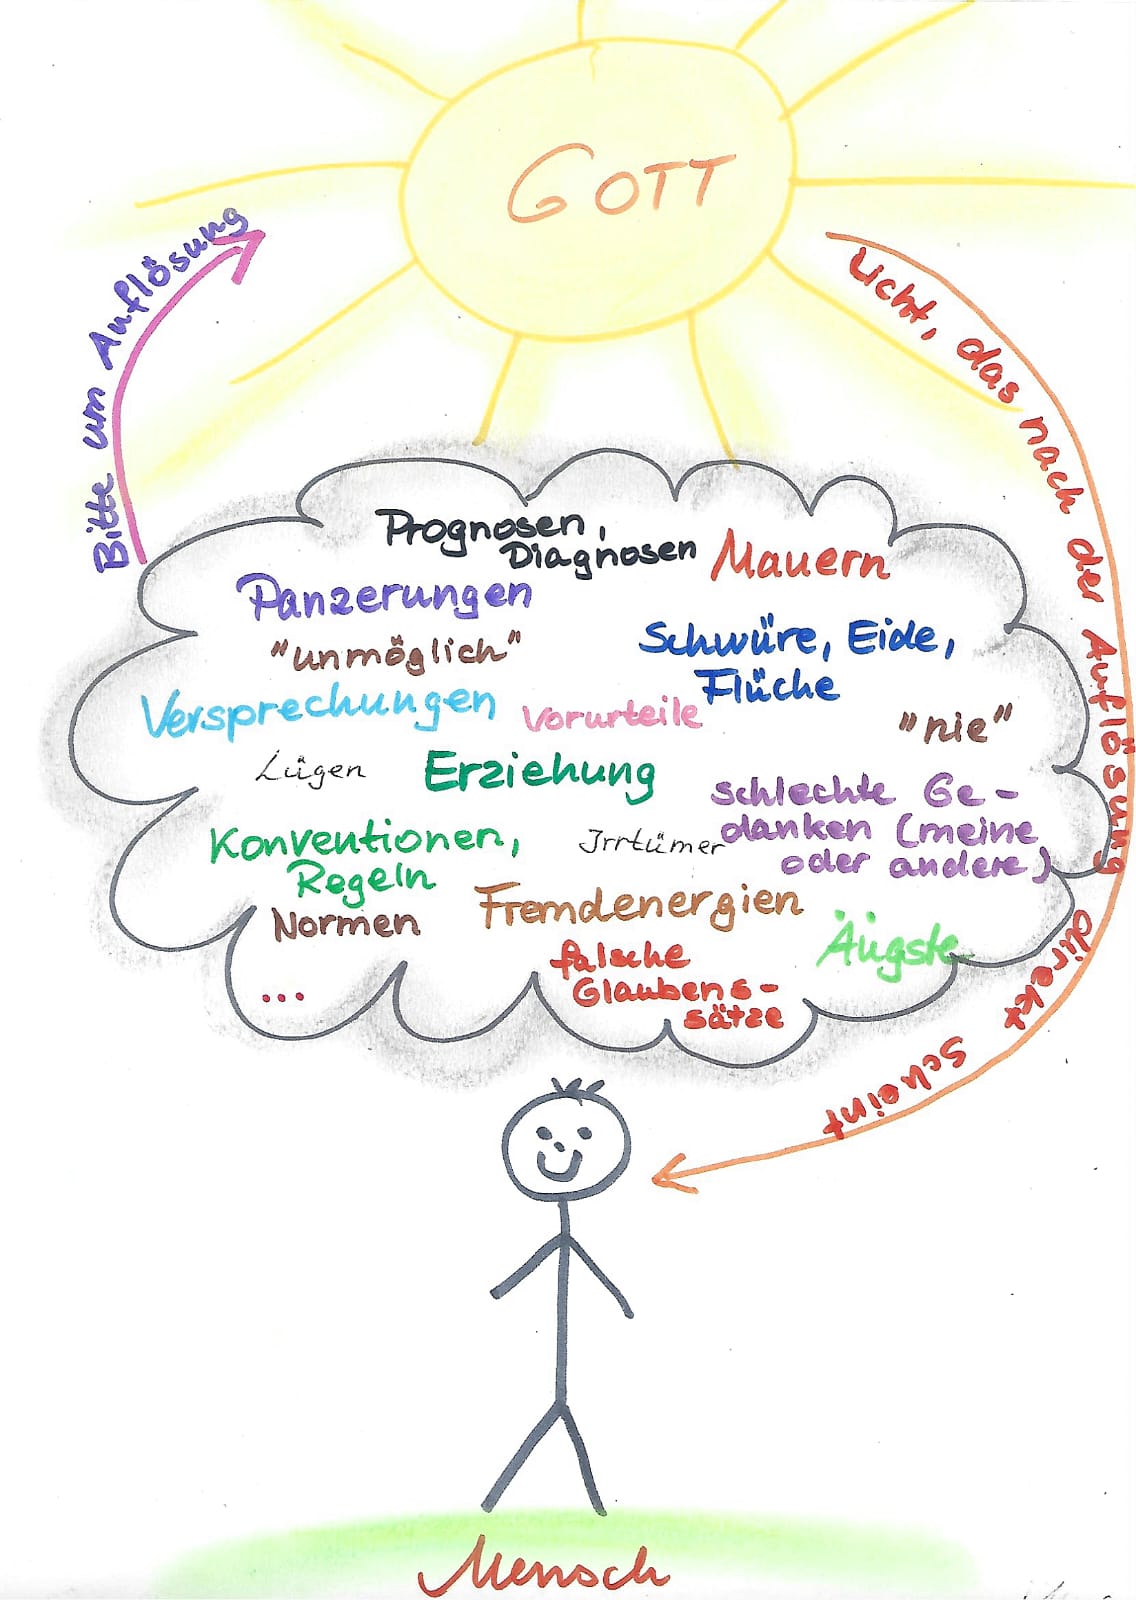 GOTT
Bitte um Auflösung
Licht, das nach der Auflösung direkt scheint
Prognosen,
Diagnosen
Mauern
Panzerungen
"unmöglich"
Schwüre, Eide,
Flüche
Versprechungen
Vorurteile
"nie"
Lügen
Erziehung
schlechte Ge-
danken (meine
oder andere)
Konventionen,
Regeln
Irrtümer
Normen
Fremdenergien
Ängste
falsche
Glaubens-
sätze
...
Mensch